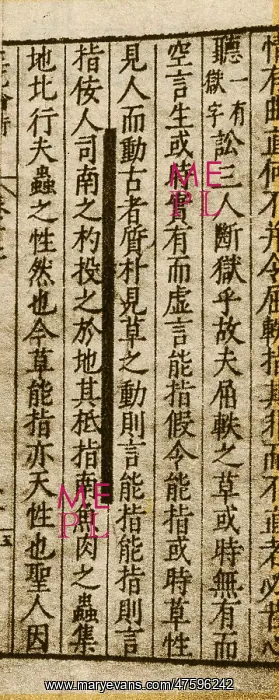 聽一有獄字訟三人斷獄乎故夫屈軼之草或時無有而
空言生或時實有而虛言能指假令能指或時草性
見人而動古者質朴見草之動則言能指能指則言
指佞人司南之杓投之於地其柢指南魚肉之蟲集
地北行夫蟲之性然也今草能指亦天性也聖人因
五
MEPL
MEPL
www.maryevans.com/47596242